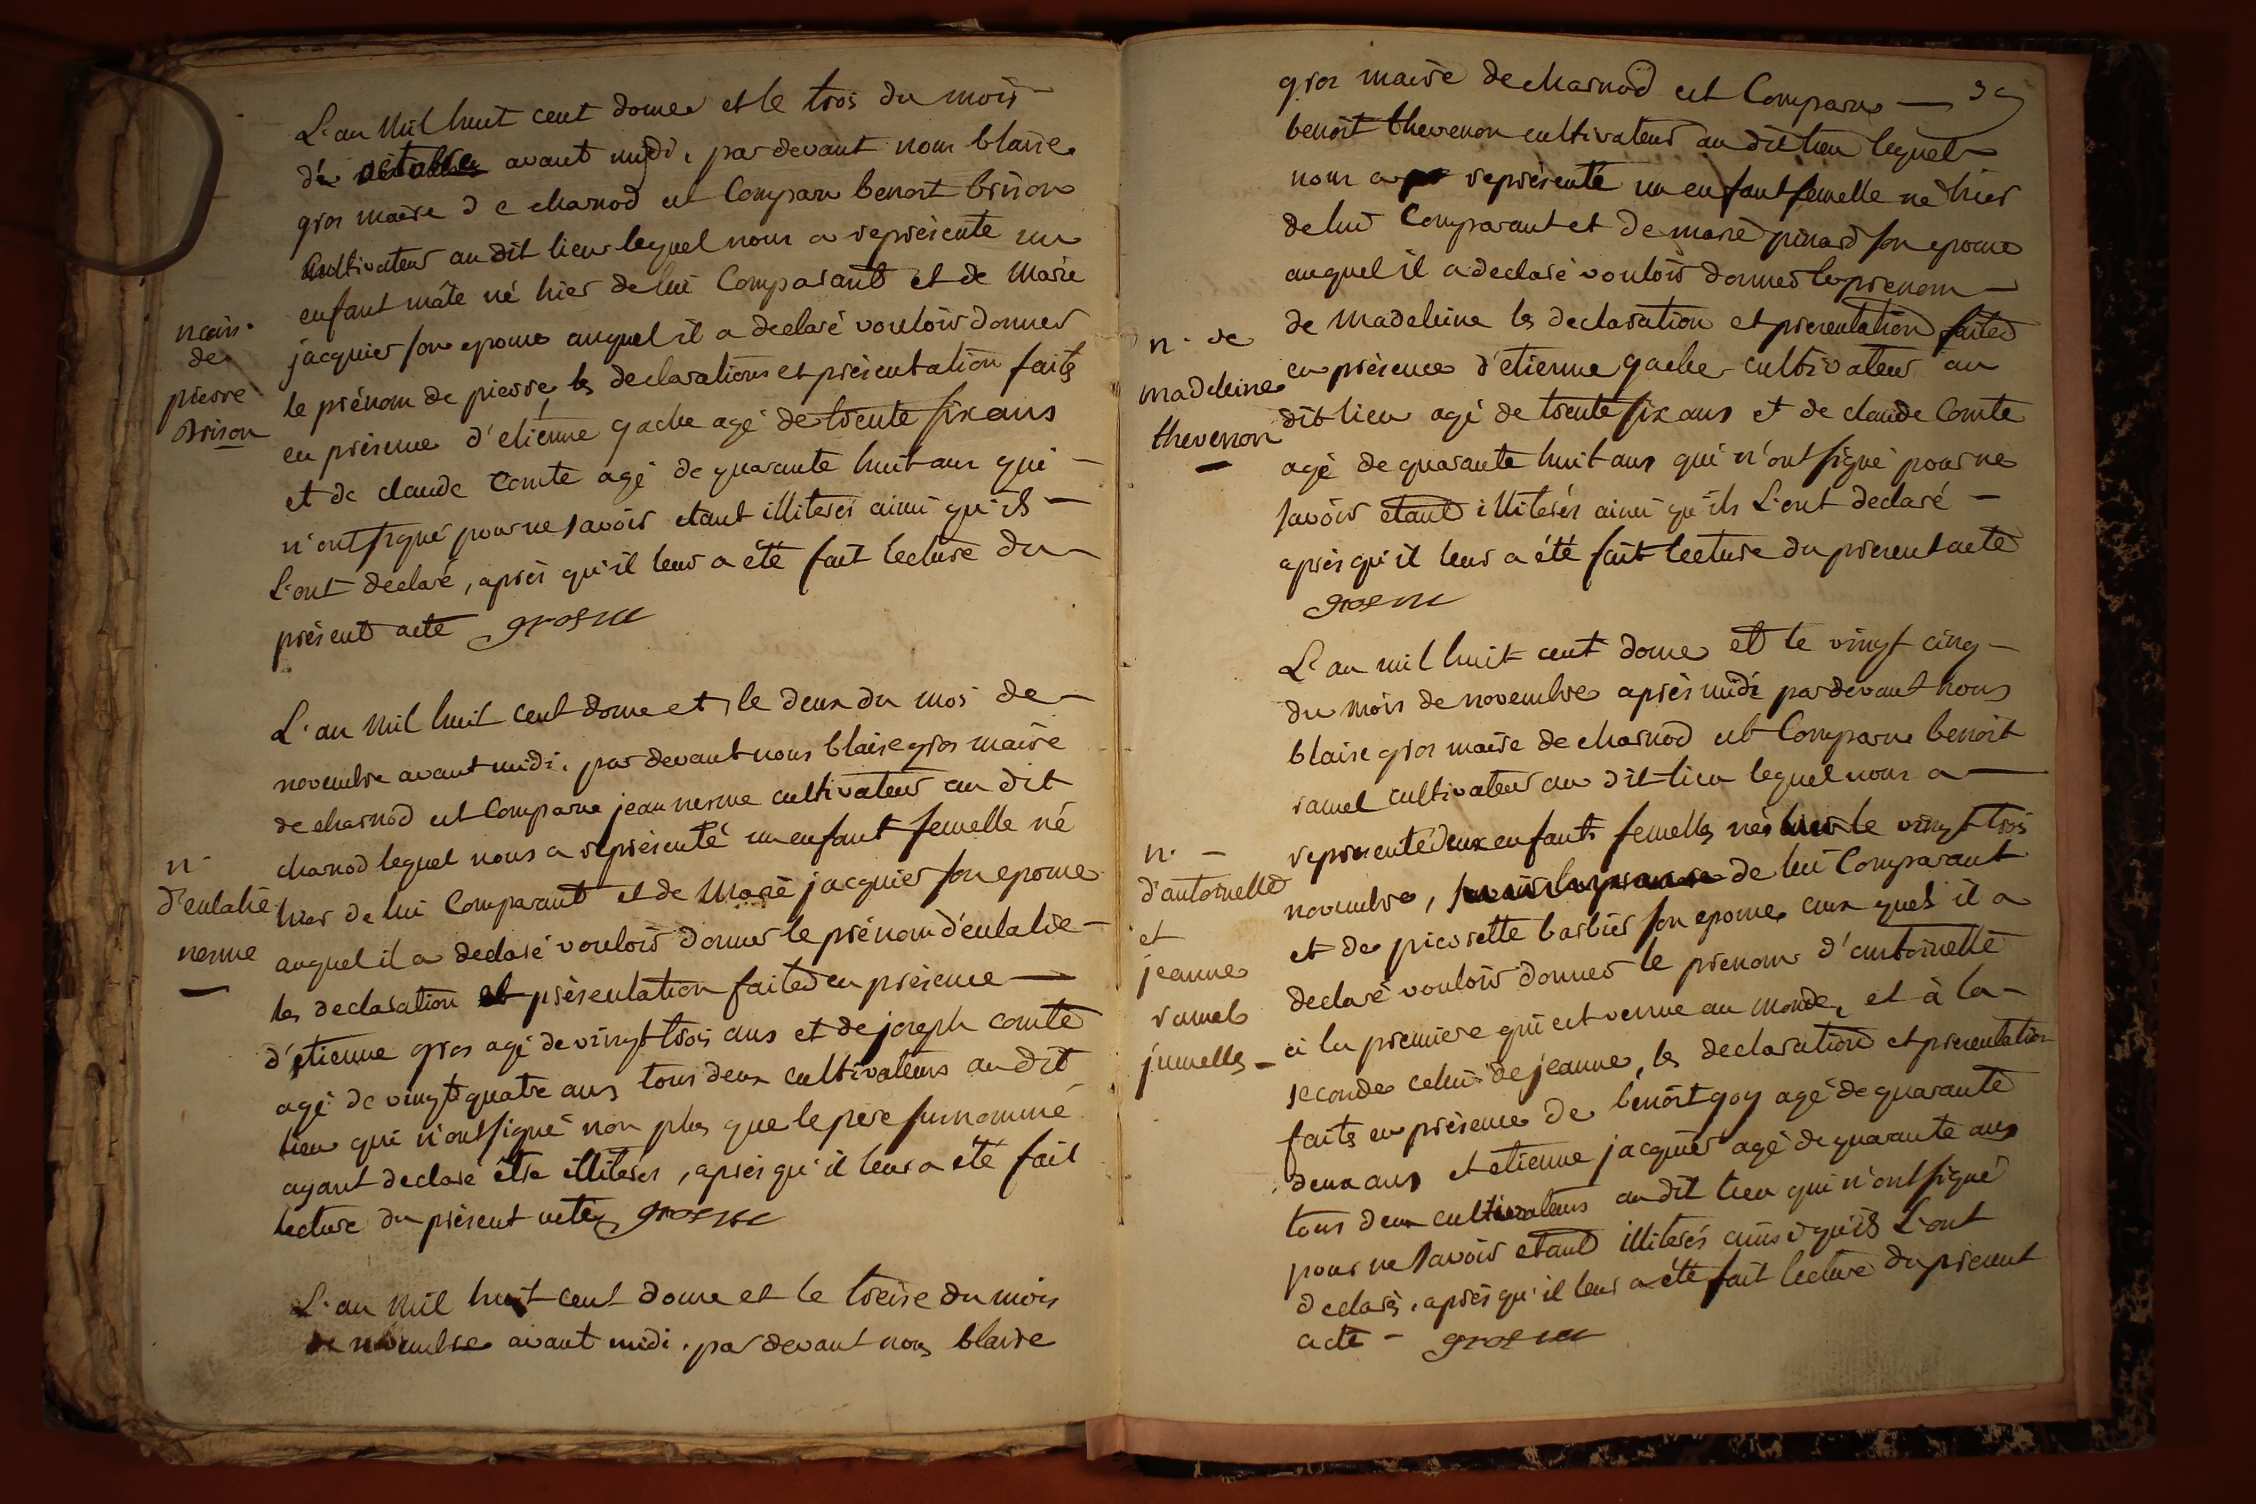 L'an mil huit cent douze et le trois du mois
de octobre avant midi, par devant nous blaise
gros maire de charnod est Comparu benoit brison
Cultivateur au dit lieu lequel nous a représenté un
enfant mâle né hier de lui Comparant et de Marie
jacquier son epouse auquel il a declaré vouloir donner
le prénom de pierre les declarations et présentation faites
en présence d'etienne gache agé de trente six ans
et de claude Comte agé de quarante huit ans qui
n'ont signé pour ne savoir etant illiterés ainsi qu'ils
L'ont declaré, après qu'il leur a été fait lecture du
présent acte gros m
nais.
de
pierre
Brison
L'an mil huit cent douze et le deux du mois de
novembre avant midi, par devant nous blaise gros maire
de charnod est Comparu jean nerme cultivateur au dit
charnod lequel nous a représenté un enfant femelle né
hier de lui Comparant et de Marie jacquier son epouse
auquel il a declaré vouloir donner le prénom d'eulalie
les declaration et présentation faites en présence
d'etienne gros agé de vingt trois ans et de joseph comte
agé de vingt quatre ans tous deux cultivateurs au dit
lieu qui n'ont signé non plus que le père surnommé
ayant declaré être illiterés, après qu'il leur a été fait
lecture du présent acte gros m
n.
d'eulalie
nerme
L'an mil huit cent douze et le treise du mois
de novembre avant midi, par devant nous blaise
39
gros maire de charnod est Comparu
benoit thevenon cultivateur au dit lieu lequel
nous a représenté un enfant femelle né hier
de lui Comparant et de marie pinard son epouse
auquel il a declaré vouloir donner le prenom
de Madeleine les declaration et presentation faites
en présence d'etienne gache cultivateur au
dit lieu agé de trente six ans et de claude Comte
agé de quarante huit ans qui n'ont signé pour ne
savoir etant illiterés ainsi qu'ils L'ont declaré
après qu'il leur a été fait lecture du present acte
gros m
n. de
madeleine
thevenon
L'an mil huit cent douze et le vingt cinq
du mois de novembre après midi par devant nous
blaise gros maire de charnod est Comparu benoit
ramel cultivateur au dit lieu lequel nous a
representé deux enfants femelles nés hier le vingt trois
novembre, de lui Comparant
et de pierrette barbier son epouse aux quels il a
declaré vouloir donner le prenom d'antoinette
à la premiere qui est venue au monde, et à la
seconde celui de jeanne, les declaration et presentation
faites en présence de benoit goy agé de quarante
deux ans et etienne jacquier agé de quarante ans
tous deux cultivateurs au dit lieu qui n'ont signé
pour ne savoir etant illiterés ainsi qu'ils L'ont
declaré, après qu'il leur a été fait lecture du present
acte - gros m
n.
d'antoinette
et
jeanne
ramel
jumelles